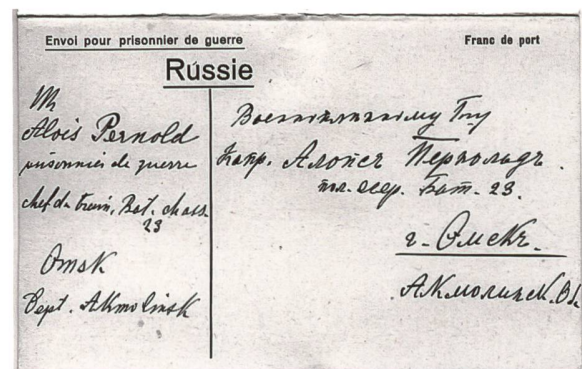 Envoi pour prisonnier de guerre
Franc de port
Russie
M
Alois Pernold
prisonnier de guerre
chef du train, Bat. chass.
23
Omsk
Dept. Akmolinsk
Военнопленному Гну
Капр. Алойсъ Перно́льдъ.
Бат. 23.
г. Омскъ.
Акмолинск. Об.